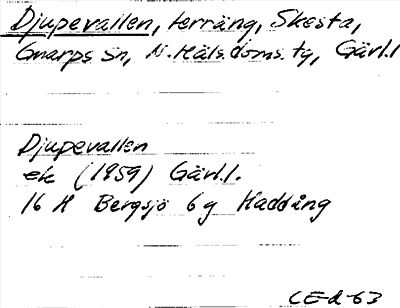 Djupevallen, terräng, Skesta,
Gnarps sn, N. Häls. doms. tg, Gävl.l
Djupevallen
ek (1959) Gävl.l.
16 H Bergsjö 6g Haddång
CE-d-63